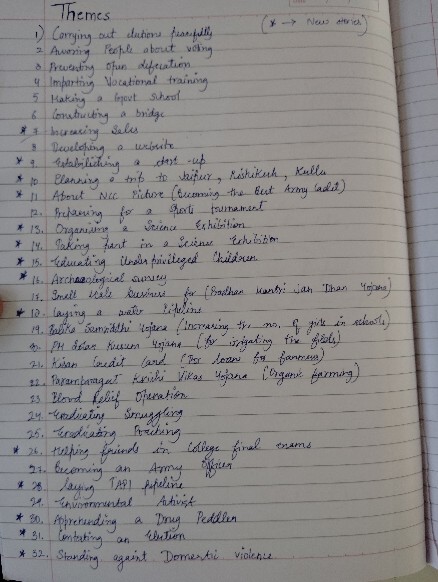 Themes
(* → New stories)
1) Carrying out elations peacefully
2 Awaring People about voting
3 Preventing Open defecation
4 Imparting Vocational training
5 Making a Govt School
6 Constructing a bridge
* 7. Increasing Sales
8 Developing a website
* 9. Establishing a start-up
* 10. Planning a trip to Jaipur, Rishikesh, Kullu
* 11 About NCC Picture (Becoming the Best Army Cadet)
12. Preparing for a Sports tournament
* 13. Organising a Science Exhibition
* 14. Taking part in a Science Exhibition
* 15. Educating Underprivileged Children
* 16. Archaeological survey
17. Small scale business for (Pradhan Mantri Jan Dhan Yojana)
* 18. Laying a water Pipeline
19. Balika Samriddhi Yojana (Increasing the no. of girls in schools)
20. PM Kusum Yojana (for irrigating the fields)
21. Kisan Credit Card (For loans for farmers)
22. Paramparagat Krishi Vikas Yojana (Organic farming)
23. Flood Relief Operation
24. Eradicating Smuggling
25. Eradicating Poaching
* 26. Helping friends in College final exams
27. Becoming an Army Officer
* 28. Laying TAPI pipeline
29. Environmental Activist
* 30. Apprehending a Drug Peddler
* 31. Contesting an Election
* 32. Standing against Domestic violence